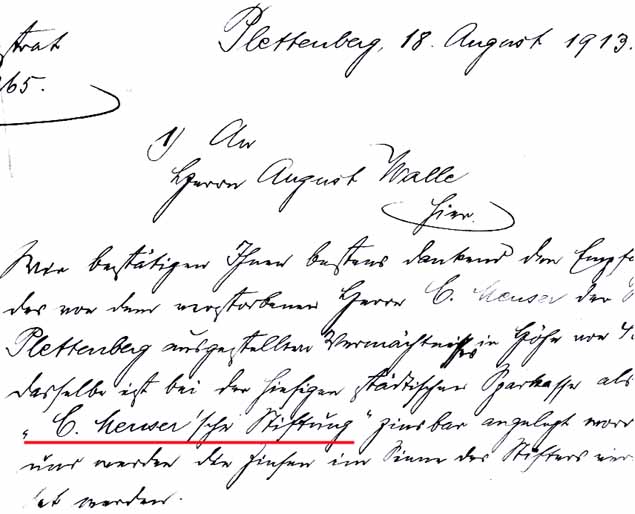 strat
65.
Plettenberg, 18. August 1913.
1) An
Herrn August Walle
hier.
Wir bestätigen Ihnen bestens dankend den Empfa
des von dem verstorbenen Herrn C. Heuser der
Plettenberg ausgestellten Vermächtnisses in Höhe von
dasselbe ist bei der hiesigen städtischen Sparkasse als
„C. Heuser'sche Stiftung“ zinsbar angelegt wor
uns werden die Zinsen im Sinne des Stifters ver
det werden.